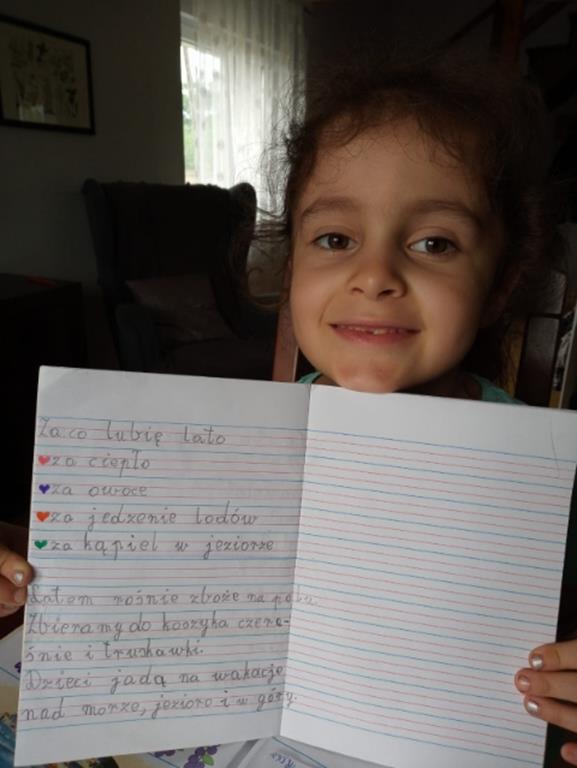 Za co lubię lato
za ciepło
za owoce
za jedzenie lodów
za kąpiel w jeziorze
Latem rośnie zboże na polu.
Zbieramy do koszyka czere-
śnie i truskawki.
Dzieci jadą na wakacje
nad morze, jezioro i w góry.